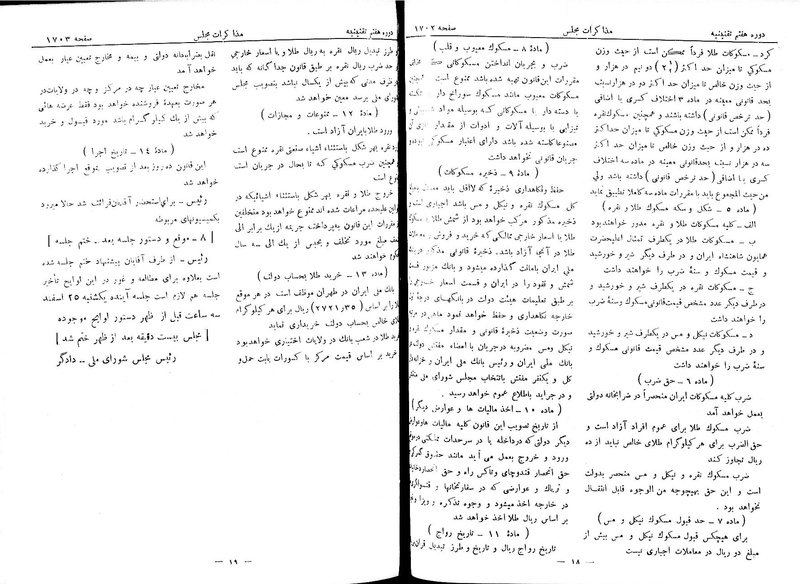 دوره هفتم تقنینیه
مذاکرات مجلس
صفحه ۱۷۰۲
کرد - مسکوکات طلا فرداً ممکن است از حیث وزن
مسکوکی تا میزان حد اکثر (۲) دو نیم در هزار و
از حیث وزن خالص تا میزان حد اکثر دو در هزار نسبت
بحد قانونی معینه در ماده ۳ اختلاف کسری یا اضافی
(حد ترخص قانونی) داشته باشند و همچنین مسکوك نقره
فرداً ممکن است از حیث وزن مسکوکی تا میزان حد اکثر
ده در هزار و از حیث وزن خالص تا میزان حد اکثر
سه در هزار نسبت بحد قانونی معینه در ماده سه اختلاف
کسری یا اضافی (حد ترخص قانونی) داشته باشد ولی
من حیث المجموع باید با مقررات ماده سه کاملا تطبیق نماید
( ماده ۵ - شکل و سکه مسکوك طلا و نقره )
الف - کلیه مسکوکات طلا و نقره مدور خواهند بود
ب - مسکوکات طلا در یکطرف تمثال اعلیحضرت
همایون شاهنشاه ایران و در طرف دیگر شیر و خورشید
و قیمت مسکوك و سنهٔ ضرب را خواهند داشت
ج - مسکوکات نقره در یکطرف شیر و خورشید و
در طرف دیگر عدد مشخص قیمت قانونی مسکوك و سنهٔ ضرب
را خواهند داشت
د - مسکوکات نیکل و مس در یکطرف شیر و خورشید
و در طرف دیگر عدد مشخص قیمت قانونی مسکوك و
سنهٔ ضرب را خواهند داشت
( ماده ۶ - حق ضرب )
ضرب کلیه مسکوکات ایران منحصراً در ضرابخانه دولتی
بعمل خواهد آمد
ضرب مسکوك طلا برای عموم افراد آزاد است و
حق الضرب برای هر کیلوگرام طلای خالص نباید از ده
ریال تجاوز کند
ضرب مسکوك نقره و نیکل و مس منحصر بدولت
است و این حق بهیچوجه من الوجوه قابل انتقال
نخواهد بود .
( ماده ۷ - حد قبول مسکوك نیکل و مس )
برای هیچکس قبول مسکوك نیکل و مس بیش از
مبلغ دو ریال در معاملات اجباری نیست
( مادهٔ ۸ - مسکوك معیوب و قلب )
ضرب و بجریان انداختن مسکوکاتی که
مقررات این قانون تهیه شده باشد ممنوع است
مسکوکات معیوب مانند مسکوك سوراخ دار
یا دسته دار یا مسکوکاتی که بوسیله مواد شیمیائی
تیزابی یا بوسیله آلات و ادوات از مقدار
مصنوعا کاسته شده باشد دارای اعتبار مسکوك
جریان قانونی نخواهد داشت
( مادهٔ ۹ - ذخیره مسکوکات )
حفظ و نگاهداری ذخیرهٔ که لااقل باید
کل مسکوك نقره و نیکل و مس را داشته باشد
ذخیره مذکور مرکب خواهد بود از شمش طلا
طلا یا اسعار خارجی ممالکی که خرید و فروش
طلا در آنجا آزاد باشد . ذخیرهٔ قانونی مذکور
ملی ایران بامانت گذارده میشود و بانك مزبور
شمش و نقود را در ایران و قسمت اسعار خارجی
بر طبق تعلیمات هیئت دولت در بانکهای درجهٔ
خارجه نگاهداری و حفظ خواهد نمود
صورت وضعیت ذخیرهٔ قانونی و مقدار مسکوك
نیکل ومس مضروبه در جریان با امضاء
دولت و رئیس بانك ملی ایران و خزانه‌دار
کل و یکنفر مفتش بانتخاب مجلس شورای ملی
و در جراید باطلاع عموم خواهد رسید .
( ماده ۱۰ - اخذ مالیات ها و عوارض دیگر )
از تاریخ تصویب این قانون کلیه مالیات ها و عوارض
دیگر دولتی که در داخله یا در سرحدات مملکتی
ورود و خروج بعمل می آید مانند حقوق گمرکی
حق انحصار قندوچای وتنباکس راه و حق
و تریاك و عوارضی که در سفارتخانها و قنسولگری
در خارجه اخذ میشود و وجوه تذکره و ویزا
بر اساس ریال طلا اخذ خواهد شد
( مادهٔ ۱۱ - تاریخ رواج )
تاریخ رواج ریال و تاریخ و طرز تبدیل قران
— ۱۸ —
دوره هفتم تقنینیه
مذاکرات مجلس
صفحه ۱۷۰۳
و طرز تبدیل ریال نقره به ریال طلا و یا اسعار خارجی
مسکوك نقره بر طبق قانون جداگانه که باید
در ظرف مدتی که بیش از یکسال نباشد بتصویب مجلس
ملی برسد معین خواهد شد
( ماده ۱۲ - ممنوعات و مجازات )
ورود طلا بایران آزاد است .
ورود نقره بهر شکل باستثناء اشیاء صنعتی نقره ممنوع است
همچنین ضرب مسکوکی که تا بحال در جریان است
است
خروج طلا و نقره بهر شکل باستثناء اشیائیکه در
قوانین علیحده مراعات شده اند ممنوع خواهد بود متخلفین
مقررات این قانون بپرداخت جریمه ازیك برابر الی
مبلغ مورد تخلف و بحبس از یك الی سه سال
خواهند شد
( ماده ۱۳ - خرید طلا بحساب دولت )
بانك ملی ایران در طهران موظف است در هر موقع
طلا را بر اساس (۲۷۲۱٫۳۵) ریال برای هر کیلوگرام
طلای خالص بحساب دولت خریداری نماید
خرید طلا در شعب بانك در ولایات اختیاری خواهد بود
خرید بر اساس قیمت مرکز با کسورات بابت حمل و
نقل بضرابخانه دولتی و بیمه و مخارج تعیین عیار بعمل
خواهد آمد
مخارج تعیین عیار چه در مرکز و چه در ولایات در
هر صورت بعهدهٔ فروشنده خواهد بود فقط عرضه هائی
که بیش از یك کیلوگرام باشد مورد قبول و خرید
خواهد شد
( مادهٔ ۱۴ - تاریخ اجرا )
این قانون ده روز بعد از تصویب بموقع اجرا گذارده
میشود .
رئیس - برای استحضار آقایان قرائت شد حالا میرود
بکمیسیونهای مربوطه
[ ۸ - موقع و دستور جلسه بعد - ختم جلسه ]
رئیس - از طرف آقایان پیشنهاد ختم جلسه شده
است بعلاوه برای مطالعه و غور در این لوایح تأخیر
جلسه هم لازم است جلسه آینده یکشنبه ۲۵ اسفند
سه ساعت قبل از ظهر دستور لوایح موجوده
[ مجلس بیست دقیقه بعد از ظهر ختم شد ]
رئیس مجلس شورای ملی - دادگر
— ۱۹ —